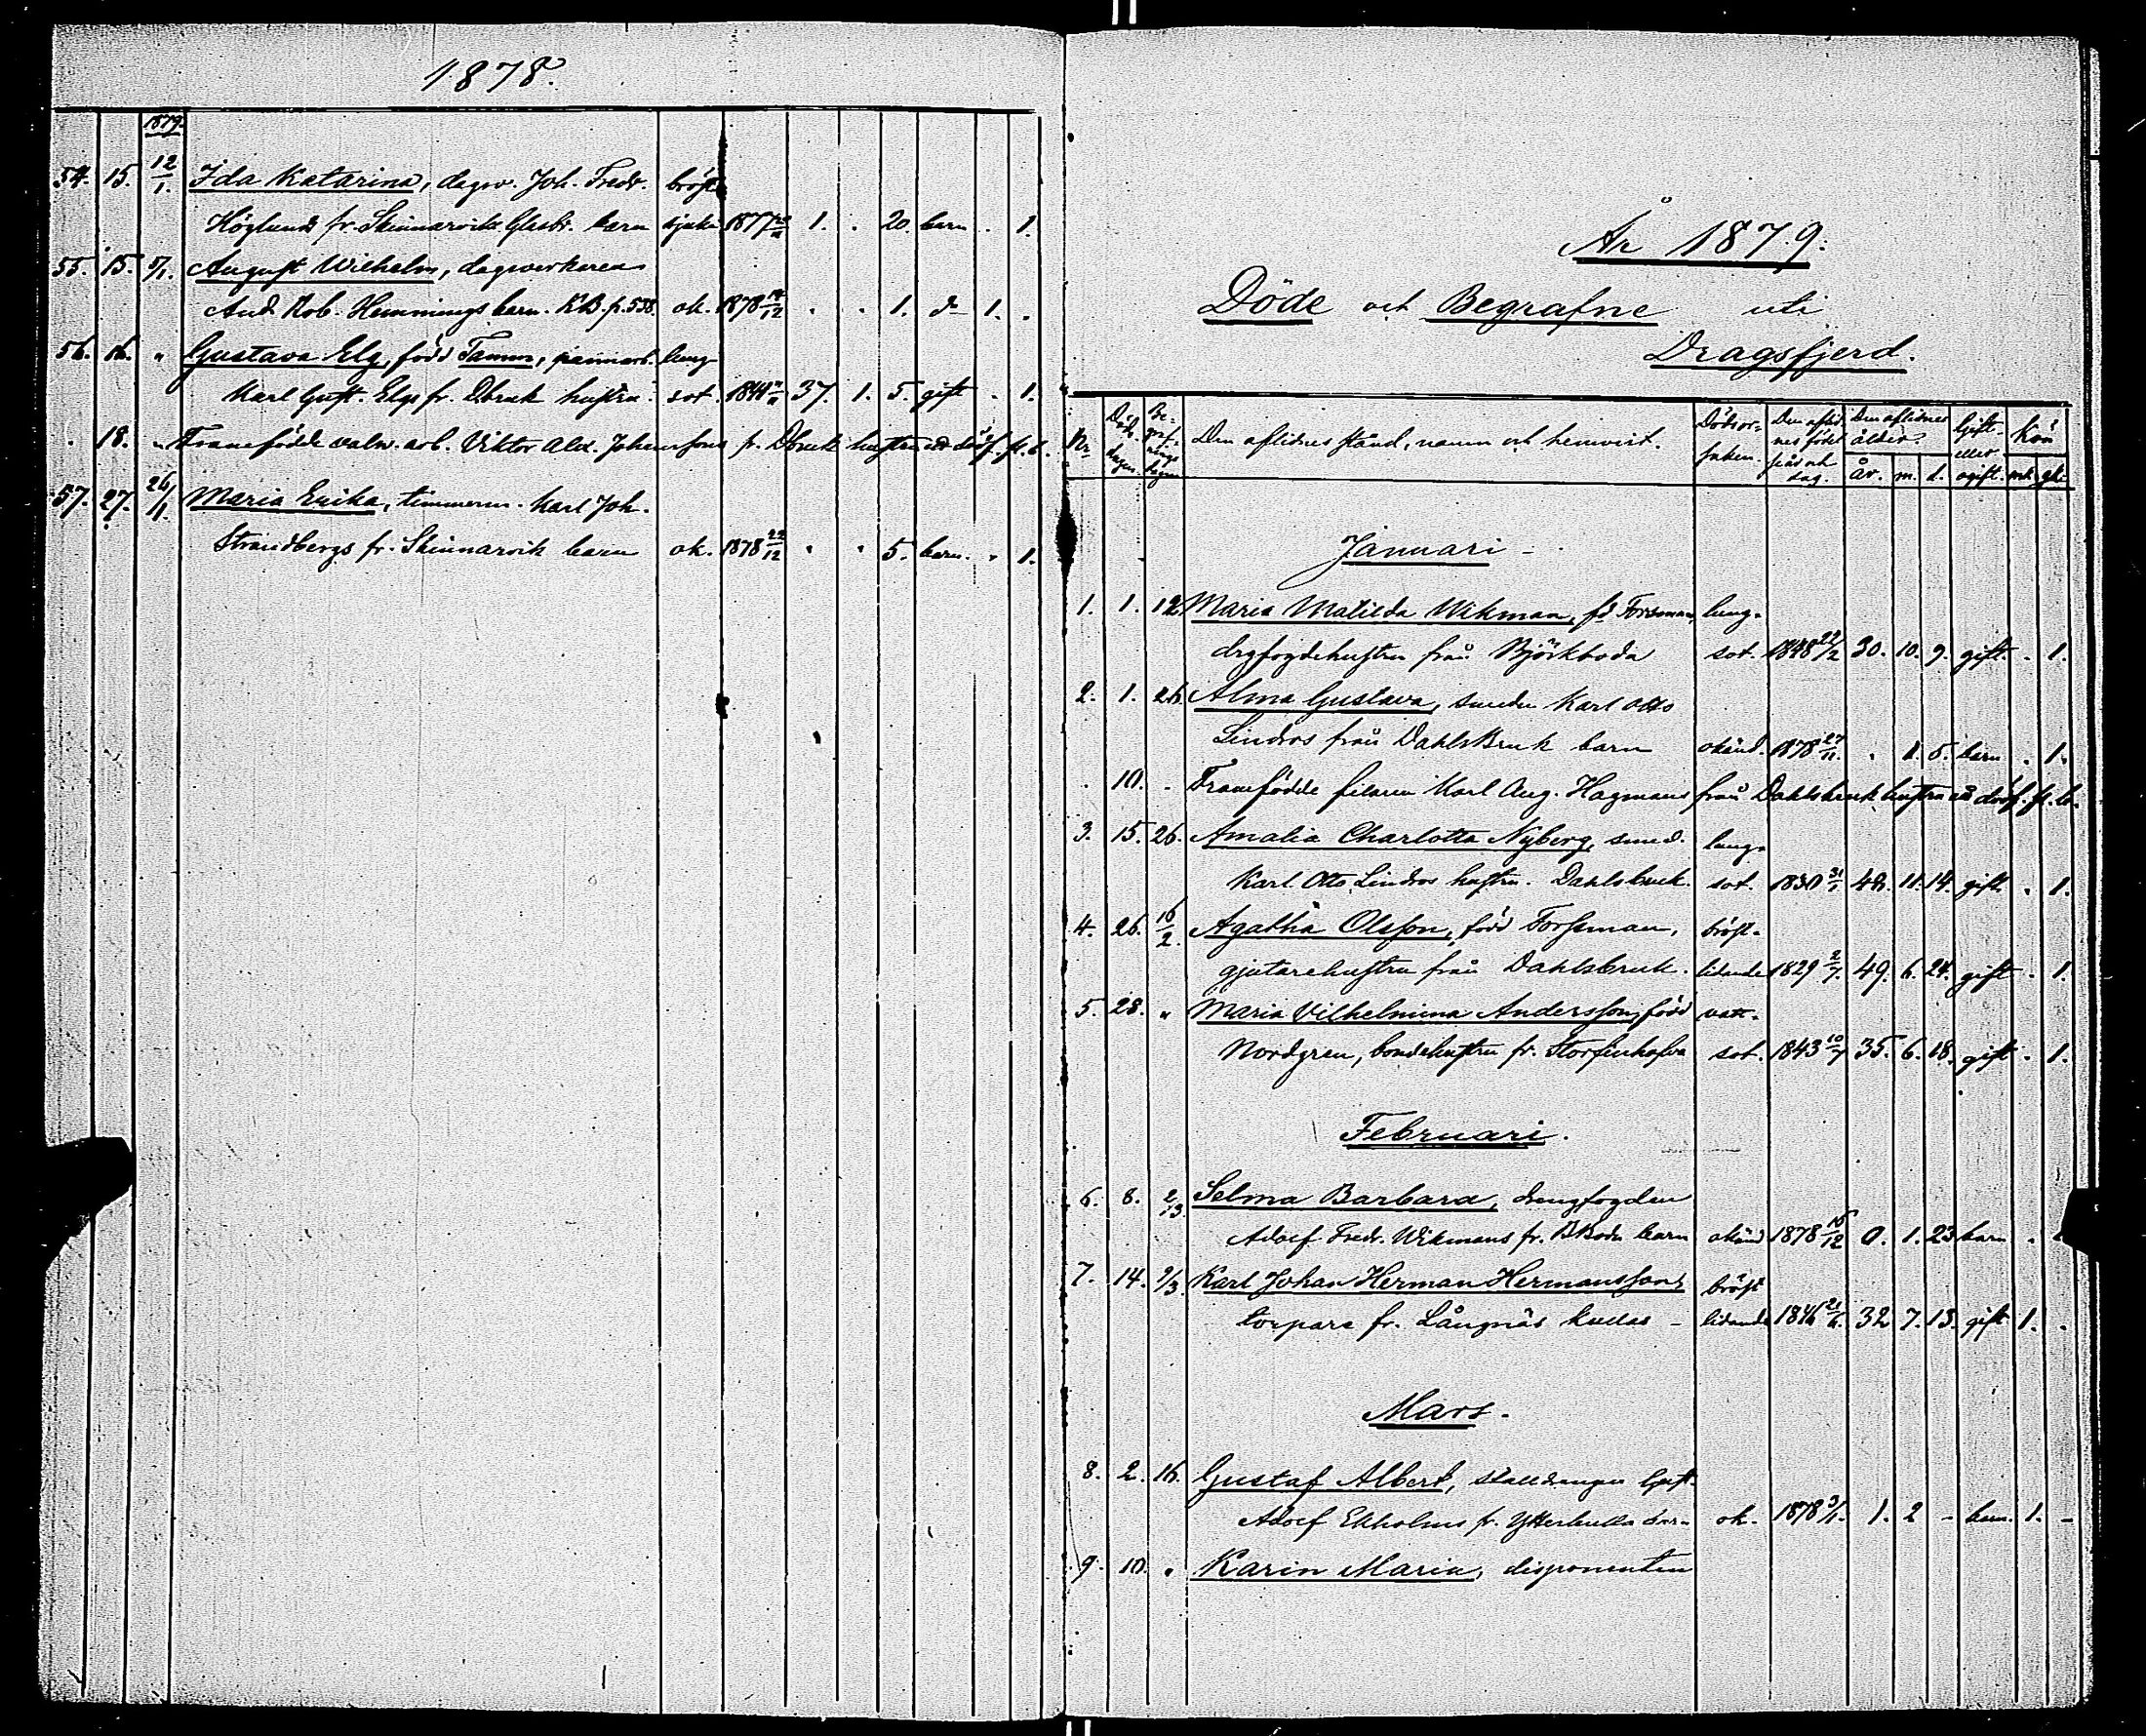 1878.
1879.
54. 15. 12/1. Ida Katarina, dagsv. Joh. Fredr. bröst
Höglunds fr. Skinnarviks Glasbr. barn sjukd. 1877 1. 20. barn . 1.
55. 15. 5/1. August Wilhelm, dagsverkaren
And. Rob. Hemmings barn. KB. p. 538. ok. 1878 14/12 . . 1. d 1. .
56. 16. " Gustava Elg, född Tamm, lung-
Karl Gust. Elgs fr. Dbruk hustru. sot. 1841 37. 1. 5. gift . 1.
. 18. " Framfödde valsv. arb. Viktor Alex. Johanssons fr. Dbruk hustru ett dödf. fl. b.
57. 27. 26/1. Maria Erika, timmerm. Karl Joh.
Strandbergs fr. Skinnarvik barn ok. 1878 22/12 . . 5. barn. . 1.
År 1879.
Döde och Begrafne uti
Dragsfjerd.
Nr Död- dagen. Be- graf- nings dagen Den aflidnes stånd, namn och hemvist. Dödsor- saken. Den aflid- nes födel- seår och dag. Den aflidnes ålder. år. m. d. Gift- eller ogift. Kön mk. qk.
Januari
1. 1. 12 Maria Matilda Wikman, fd Forssman, lung-
drgfogdehustru från Björkboda sot. 1848 22/2 30. 10. 9. gift. . 1.
2. 1. 26. Alma Gustava, smeden Karl Otto
Lindros från Dahlsbruk barn okänd. 1878 27/11. . 1. 5. barn . 1.
. 10. . Framfödde filaren Karl Aug. Hagmans från Dahlsbruk hustru ett dödf. fl. b.
3. 15. 26. Amalia Charlotta Nyberg, smed. lung-
Karl Otto Lindros hustru. Dahlsbruk. sot. 1830 31/1 48. 11. 14. gift . 1.
4. 26. 16/2. Agatha Olsson, född Forssman, bröst-
gjutarehustru från Dahlsbruk. lidande 1829 2/7. 49. 6. 24. gift . 1.
5. 28. " Maria Vilhelmina Andersson, född vatt-
Nordgren, bondehustru fr. Storfinhofva sot. 1843 10/7 35. 6. 18. gift . 1.
Februari.
6. 8. 2/3. Selma Barbara, drengfogden
Adolf Fredr. Wikmans fr. BBoda barn okänd 1878 16/12 0. 1. 23 barn .
7. 14. 9/3. Karl Johan Herman Hermansson, bröst
torpare fr. Långnäs kullas - lidande 1846 32 7. 13. gift 1. .
Mars.
8. 2. 16. Gustaf Albert, stalldrengen Gust.
Adolf Ekholms fr. Ytterkulla barn ok. 1878 3/1. 1. 2 - barn. 1. -
9. 10. " Karin Maria, disponenten